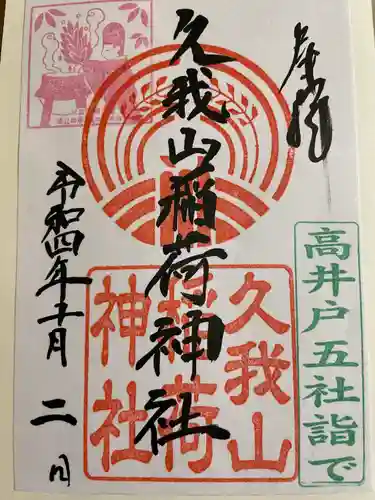 奉拝
久我山稲荷神社
久我山
稲荷
神社
高井戸五社詣で
令和四年十一月二日